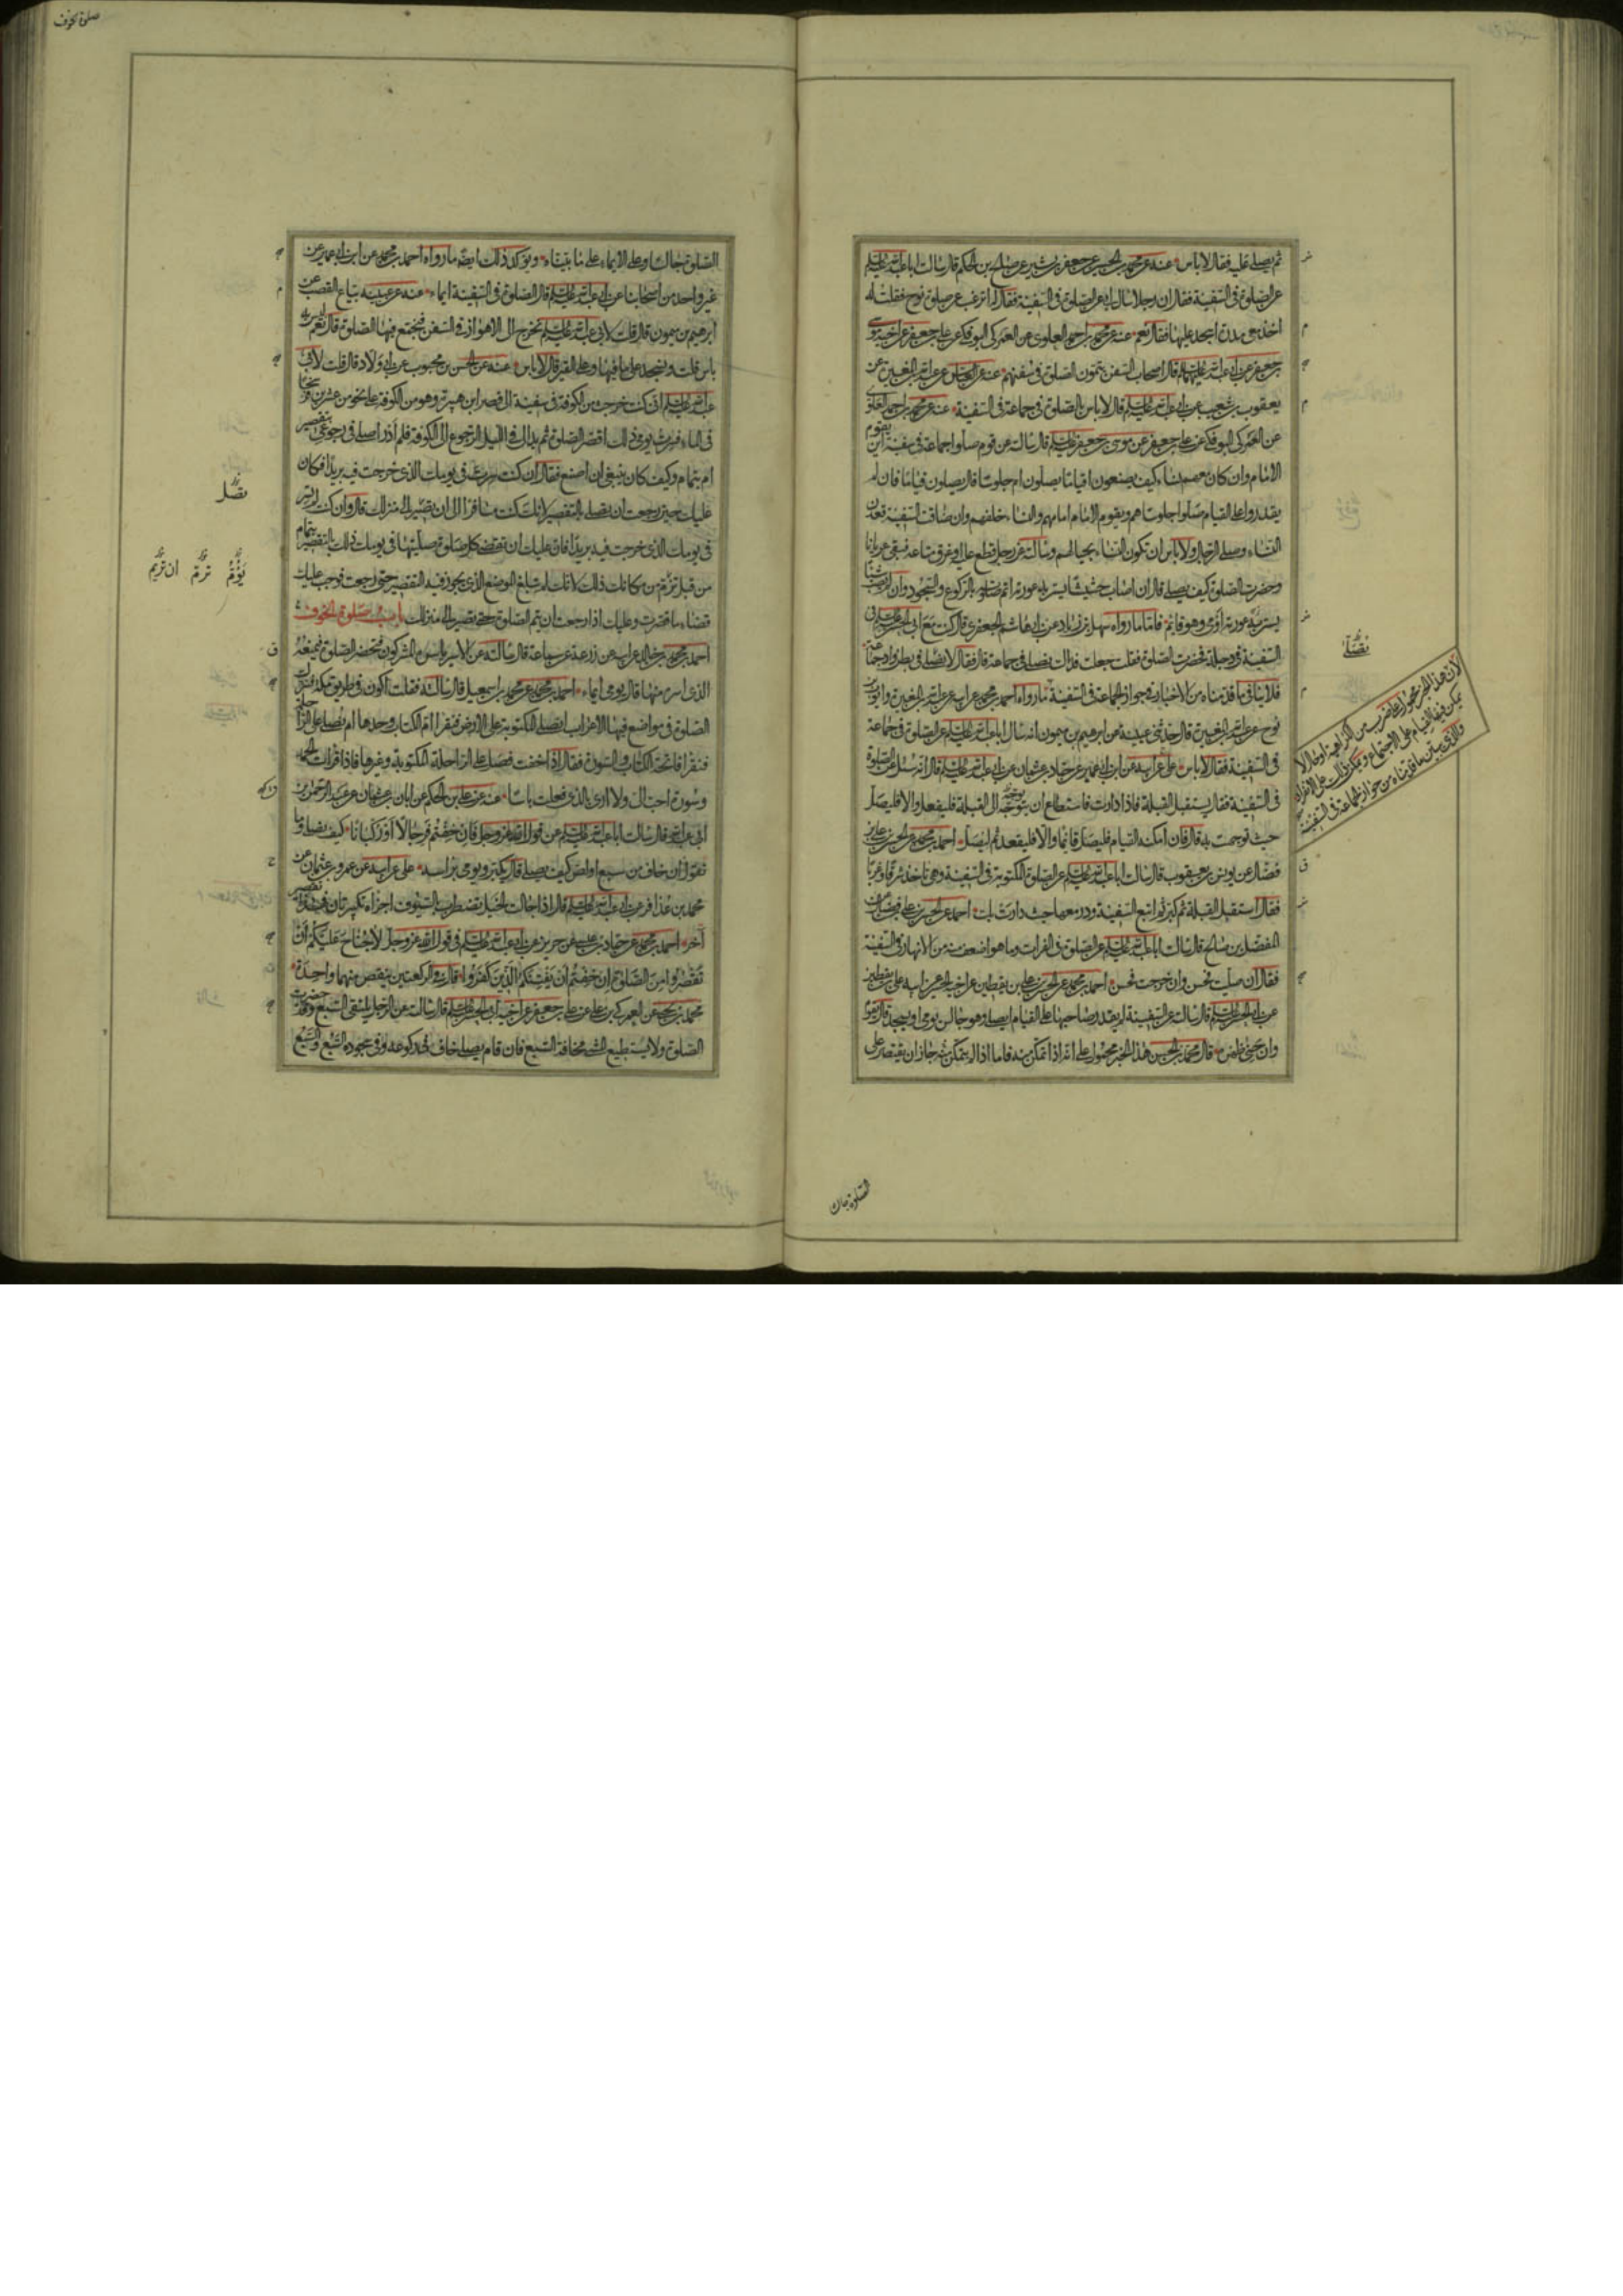 ثم يصلى عليه فقال لا باس عنه عن محمد بن الحسين عن جعفر بن بشير عن صالح بن الحكم قال سالت ابا عبد الله عليه السلم
عن الصلوة فى السفينة فقال ان رجلا سال ابى عن الصلوة فى السفينة فقال اترغب عن صلوة نوح فقلت له
اخذ معى مدرة اسجد عليها فقال نعم عنه عن محمد بن احمد العلوى عن العمركى البوفكى عن على بن جعفر عن اخيه موسى
بن جعفر عن ابى عبد الله عليهما السلم قال اصحاب السفن يتمون الصلوة فى سفنهم عنه عن العباس عن عبد الله بن المغيرة عن
يعقوب بن شعيب عن ابى عبد الله عليه السلم قال لا باس بالصلوة فى جماعة فى السفينة عنه عن محمد بن احمد العلوى
عن العمركى البوفكى عن على بن جعفر عن موسى بن جعفر عليه السلم قال سالته عن قوم صلوا جماعة فى سفينة اين يقوم
الامام وان كان معهم نساء كيف يصنعون اقياما يصلون ام جلوسا قال يصلون قياما فان لم
يقدروا على القيام صلوا جلوسا هم ويقوم الامام امامهم والنساء خلفهم وان ضاقت السفينة قعدن
النساء وصلى الرجال ولا باس ان تكون النساء بحيالهم وسالته عن رجل قطع عليه او غرق متاعه فبقى عريانا
وحضرت الصلوة كيف يصلى قال ان اصاب حشيشا يستر به عورته اتم صلوته بالركوع والسجود وان لم يصب شيئا
يستر به عورته اومى وهو قائم فاما ما رواه سهل بن زياد عن ابى هاشم الجعفرى قال كنت مع ابى الحسن عليه السلم فى
السفينة فى دجلة فحضرت الصلوة فقلت جعلت فداك نصلى فى جماعة قال فقال لا تصلى فى بطن واد جماعة
فلا ينافى ما قدمناه من الاخبار فى جواز الجماعة فى السفينة ما رواه احمد بن محمد عن ابيه عن عبد الله بن المغيرة وايوب بن
نوح عن عبد الله بن المغيرة قال حدثنى عيينة عن ابرهيم بن ميمون انه سال ابا عبد الله عليه السلم عن الصلوة فى جماعة
فى السفينة فقال لا باس على عن ابيه عن ابن ابى عمير عن حماد بن عثمان عن ابى عبد الله عليه السلم قال انه سئل عن الصلوة
فى السفينة فقال يستقبل القبلة فاذا دارت فاستطاع ان يتوجه الى القبلة فليفعل والا فليصل
حيث توجهت به قال فان امكنه القيام فليصل قائما والا فليقعد ثم ليصل احمد بن محمد عن الحسن بن على بن
فضال عن يونس بن يعقوب قال سالت ابا عبد الله عليه السلم عن الصلوة المكتوبة فى السفينة وهى تاخذ شرقا وغربا
فقال استقبل القبلة ثم كبر ثم اتبع السفينة ودر معها حيث دارت بك احمد عن الحسن بن على بن فضال عن
المفضل بن صالح قال سالت ابا عبد الله عليه السلم عن الصلوة فى الفرات وما هو اضعف منه من الانهار فى السفينة
فقال ان صليت فحسن وان خرجت فحسن احمد بن محمد عن الحسن بن على بن يقطين عن اخيه الحسين عن ابيه على بن يقطين
عن ابى الحسن عليه السلم قال سالته عن السفينة لم يقدر صاحبها على القيام ايصلى وهو جالس يومى او يسجد قال يقوم
وان حنى ظهره قال محمد بن الحسن هذا الخبر محمول على انه اذا تمكن منه فاما اذا لم يتمكن منه جاز ان يقتصر على
نصلى
لان هذا الخبر محمول على ضرب من الكراهية او حال لا
يمكن فيها القيام على الاجتماع ويمكن ذلك على الانفراد
والذى يبين ما قدمناه من جواز الجماعة فى السفينة
الصلوة جالسا
صلوة الخوف
الصلوة جالسا وعلى الايماء على ما بيناه ويؤكد ذلك ايضا ما رواه احمد بن محمد عن ابن ابى عمير عن
غير واحد من اصحابنا عن ابى عبد الله عليه السلم قال الصلوة فى السفينة ايماء عنه عن عيينة بياع القصب عن
ابرهيم بن ميمون قال قلت لابى عبد الله عليه السلم نخرج الى الاهواز فى السفن فنجمع فيها الصلوة قال نعم ليس به
باس قلت ونسجد على ما فيها وعلى القير قال لا باس عنه عن الحسن بن محبوب عن ابى ولاد قال قلت لابى
عبد الله عليه السلم انى كنت خرجت من الكوفة فى سفينة الى قصر ابن هبيرة وهو من الكوفة على نحو من عشرين فرسخا
فى الماء فسرت يومى ذلك اقصر الصلوة ثم بدا لى فى الليل الرجوع الى الكوفة فلم ادر اصلى فى رجوعى بتقصير
ام بتمام وكيف كان ينبغى ان اصنع فقال ان كنت سرت فى يومك الذى خرجت فيه بريدا فكان
عليك حين رجعت ان تصلى بالتقصير لانك كنت مسافرا الى ان تصير الى منزلك قال وان كنت لم تسر
فى يومك الذى خرجت فيه بريدا فان عليك ان تقضى كل صلوة صليتها فى يومك ذلك بالتقصير بتمام
من قبل تؤم من مكانك ذلك لانك لم تبلغ الموضع الذى يجوز فيه التقصير حتى رجعت فوجب عليك
قضاء ما قصرت وعليك اذا رجعت ان تتم الصلوة حتى تصير الى منزلك باب صلوة الخوف
احمد بن محمد بن خالد عن ابيه عن زرعة عن سماعة قال سالته عن الاسير ياسره المشركون فتحضر الصلوة فيمنعه
الذى اسره منها قال يومى ايماء احمد بن محمد عن محمد بن اسمعيل قال سالته فقلت اكون فى طريق مكة فننزل
الصلوة فى مواضع فيها الاعراب انصلى المكتوبة على الارض فنقرا ام الكتاب وحدها ام نصلى على الراحلة
فنقرا فاتحة الكتاب والسورة فقال اذا خفت فصل على الراحلة المكتوبة وغيرها فاذا قرات الحمد
وسورة احب الى ولا ارى بالذى فعلت باسا عنه عن على بن الحكم عن ابان بن عثمان عن عبد الرحمن بن
ابى عبد الله قال سالت ابا عبد الله عليه السلم عن قول الله عز وجل فان خفتم فرجالا او ركبانا كيف يصلى وما
تقول ان خاف من سبع او لص كيف يصلى قال يكبر ويومى براسه على عن ابيه عن عمرو بن عثمان عن
محمد بن عذافر عن ابى عبد الله عليه السلم قال اذا جالت الخيل تضطرب بالسيوف اجزاه تكبيرتان فهذا تقصير
آخر احمد بن محمد عن حماد بن عيسى عن حريز عن ابى عبد الله عليه السلم فى قول الله عز وجل لا جناح عليكم ان
تقصروا من الصلوة ان خفتم ان يفتنكم الذين كفروا قال فى الركعتين ينقص منهما واحدة
محمد بن يحيى عن العمركى بن على عن على بن جعفر عن اخيه ابى الحسن عليه السلم قال سالته عن الرجل يلتقى السبع وقد حضرت
الصلوة ولا يستطيع المشى مخافة السبع فان قام يصلى خاف فى ركوعه وفى سجوده السبع والسبع
تصل
يؤم ترم ان تريم